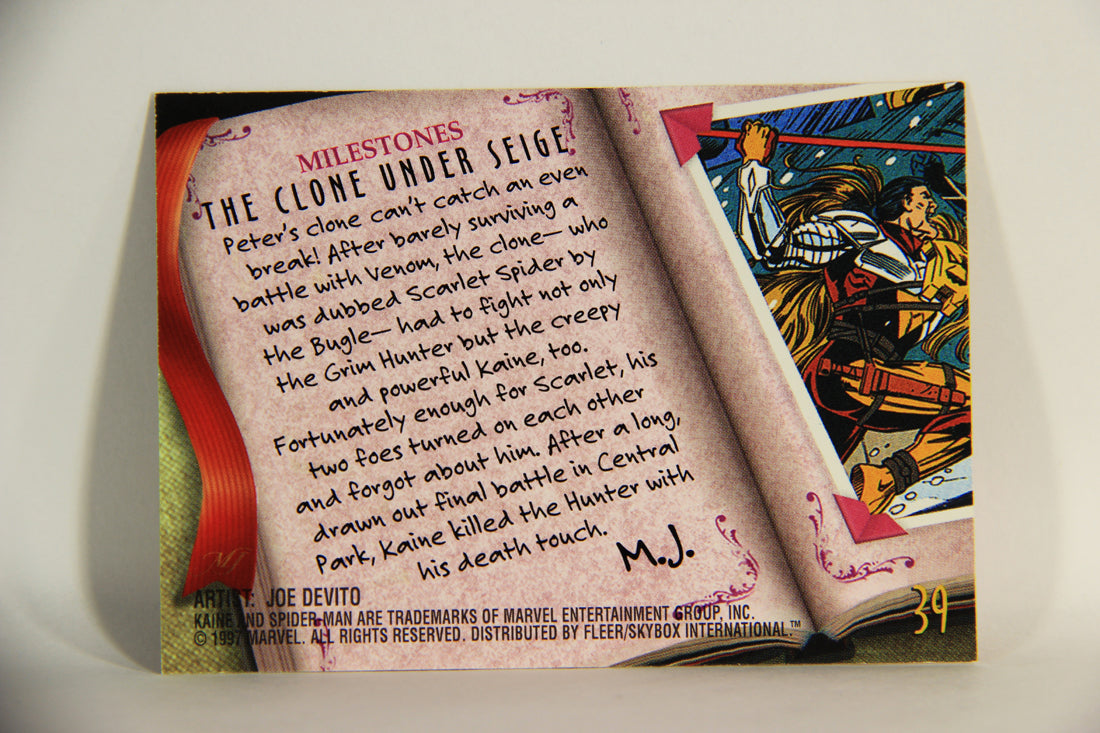 MILESTONES
THE CLONE UNDER SEIGE
Peter's clone can't catch an even
break! After barely surviving a
battle with Venom, the clone— who
was dubbed Scarlet Spider by
the Bugle— had to fight not only
the Grim Hunter but the creepy
and powerful Kaine, too.
Fortunately enough for Scarlet, his
two foes turned on each other
and forgot about him. After a long,
drawn out final battle in Central
Park, Kaine killed the Hunter with
his death touch.
M.J.
MJ
ARTIST: JOE DEVITO
KAINE AND SPIDER-MAN ARE TRADEMARKS OF MARVEL ENTERTAINMENT GROUP, INC.
© 1997 MARVEL. ALL RIGHTS RESERVED. DISTRIBUTED BY FLEER/SKYBOX INTERNATIONAL.™
39